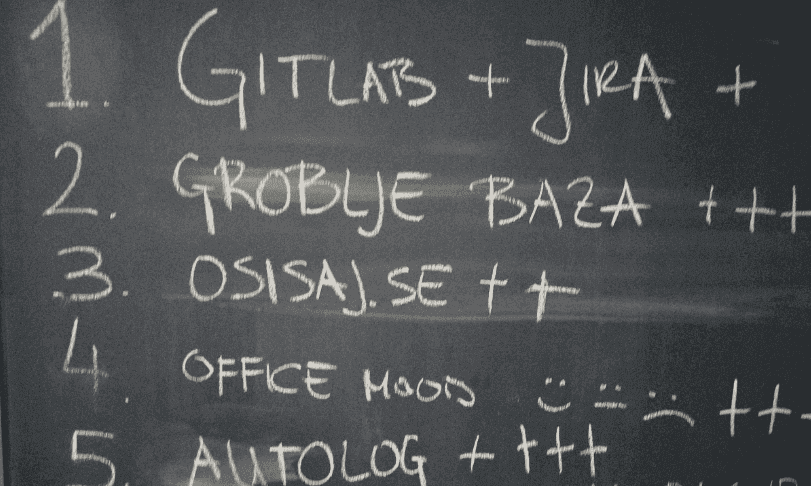 1. GITLAB + JIRA +
2. GROBLJE BAZA + + +
3. OSISAJ.SE + +
4. OFFICE MOOD :) :| :( + +
5. AUTOLOG + + + +